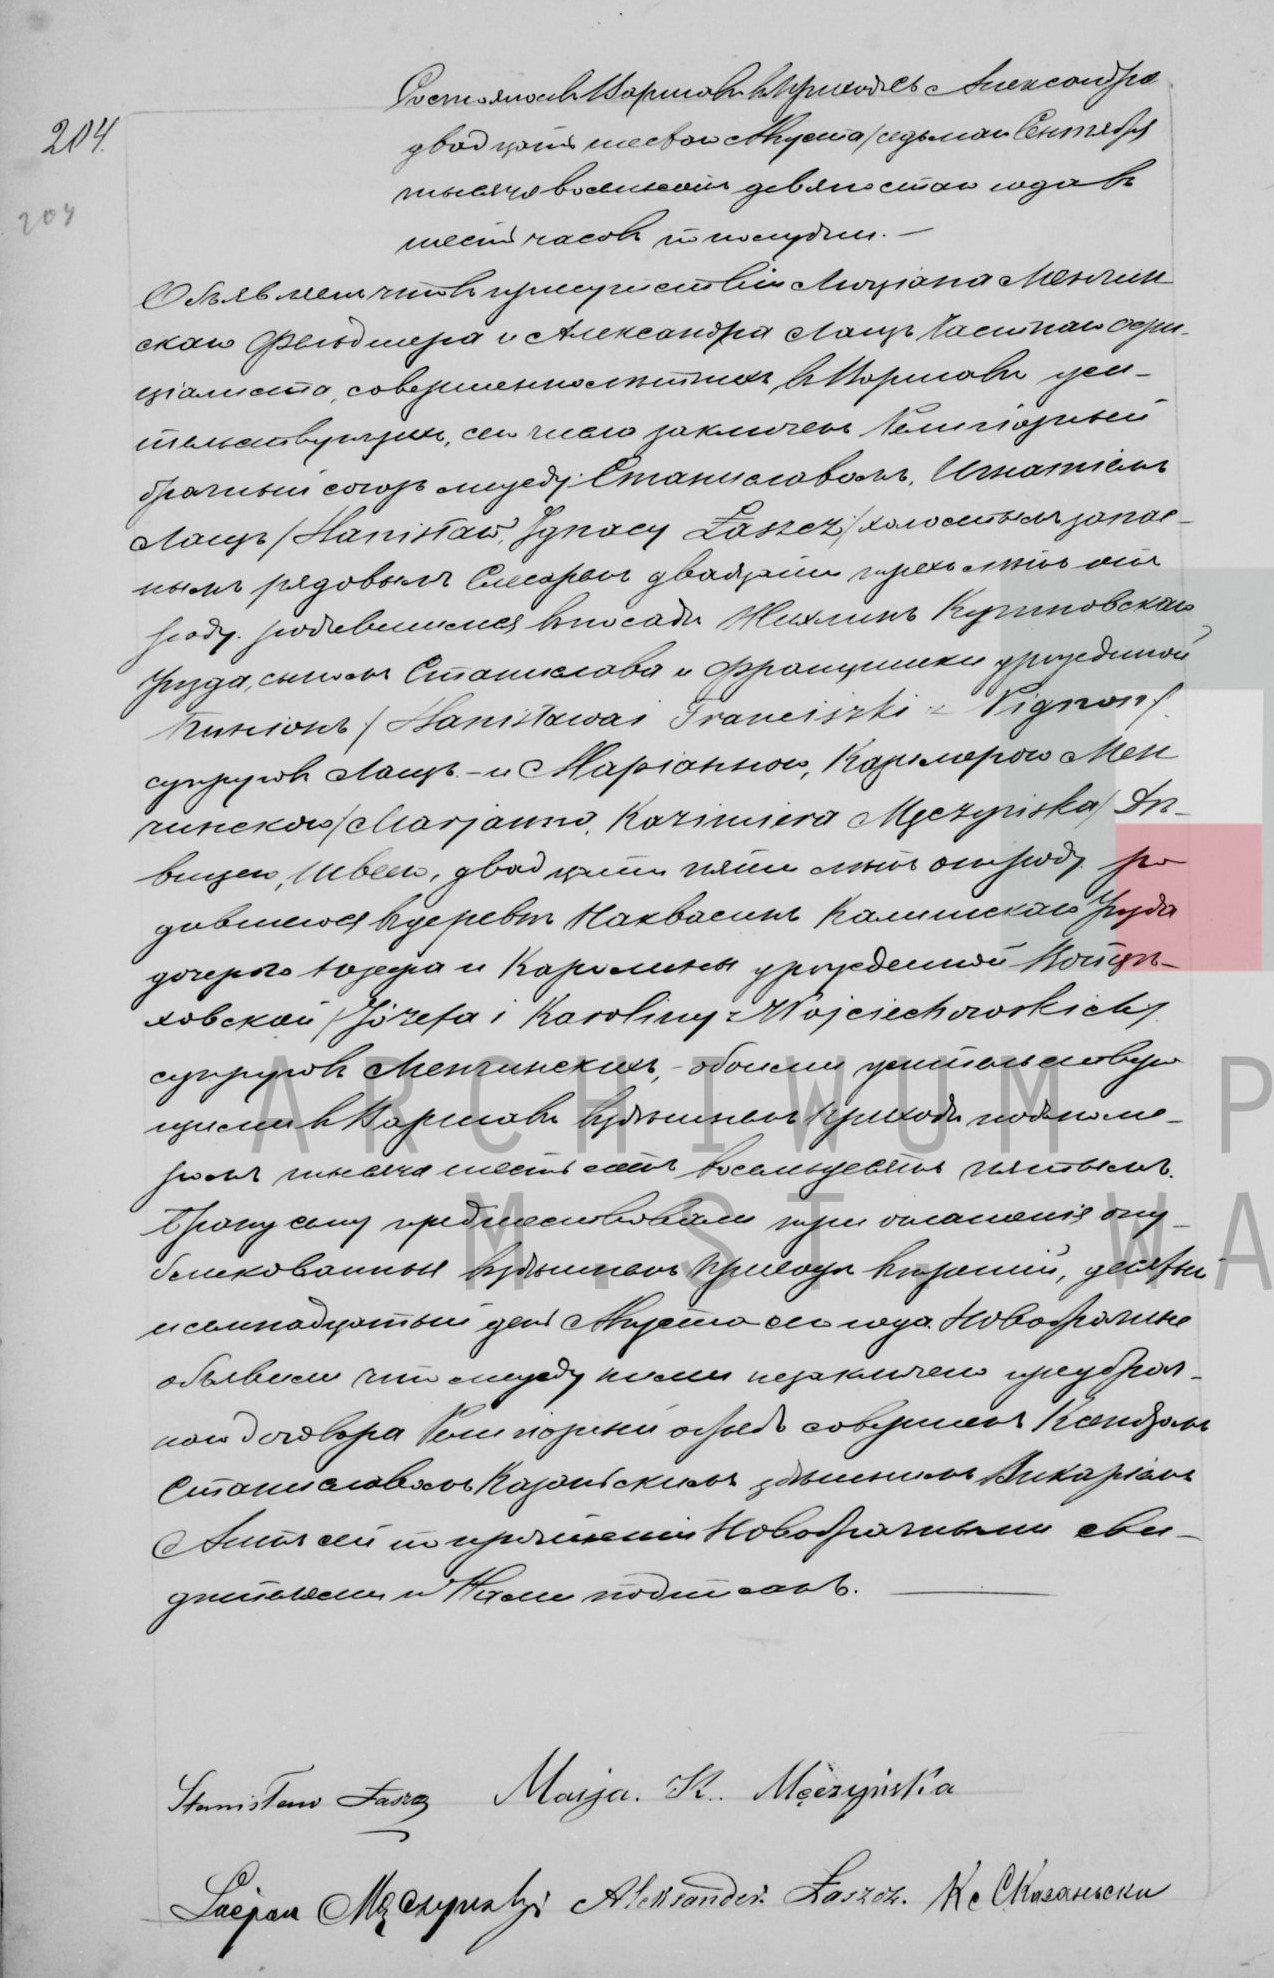 204.
204
Состоялось в Варшаве в Приходе св Александра
двадцать шестаго Августа/седьмаго Сентября
тысяча восемьсотъ девяностаго года въ
шесть часовъ по полудни. —
Объявляемъ что въ присутствіи Люціана Менчин
скаго Фельдшера и Александра Лащъ Частнаго офи-
ціалиста, совершеннолѣтнихъ въ Варшавѣ жи-
тельствующихъ, сего числа заключенъ Религіозный
брачный союзъ между Станиславомъ, Игнатіемъ
Лащъ /Stanisław, Ignacy Łaszcz/ холостымъ запас-
нымъ рядовымъ Слесаремъ двадцати трехъ лѣтъ отъ
роду. родившимся въ посадѣ Жихлинъ Кутновскаго
Уѣзда, сыномъ Станислава и Францишки урожденной
/Stanisława i Franciszki z Vignon/
супруговъ Лащъ. - и Маріанною, Казимерою Мен
чинскою /Marjanna, Kazimiera Męczyńska/ Дѣ-
вицею, Швеею, двадцати пяти лѣтъ отъ роду. ро
дившеюся въ деревнѣ Накваcинъ Калишскаго Уѣзда
дочерью Юзефа и Каролины урожденной Войцѣ-
ховской /Józefa i Karoliny z Wojciechowskich/
супруговъ Менчинскихъ, - обоими жительствую
щими въ Варшавѣ въ здѣшнемъ Приходѣ подъ номе-
ромъ тысяча шестьсотъ восемьдесятъ пятымъ.
Браку сему предшествовали три оглашенія опу-
бликованныя въ здѣшнемъ Приходѣ въ третій, десятый
и семнадцатый день Августа сего года. Новобрачные
объявили что между ними незаключено предбрач-
наго договора Религіозный обрядъ совершенъ Ксендзомъ
Станиславомъ Казаньскимъ здѣшнимъ Викаріемъ
Актъ сей по прочтеніи Новобрачными сви-
дѣтелями и Нами подписанъ. —
Stanisław Łaszcz Marja. K. Męczyńska
Lucjan Męczyński Aleksander Łaszcz. Кс СКазаньски
ARCHIWUM P
M. ST. WA